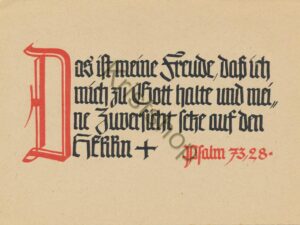 Das ist meine Freude, daß ich
mich zu Gott halte und mei„
ne Zuversicht setze auf den
HERRN +
Psalm 73,28.